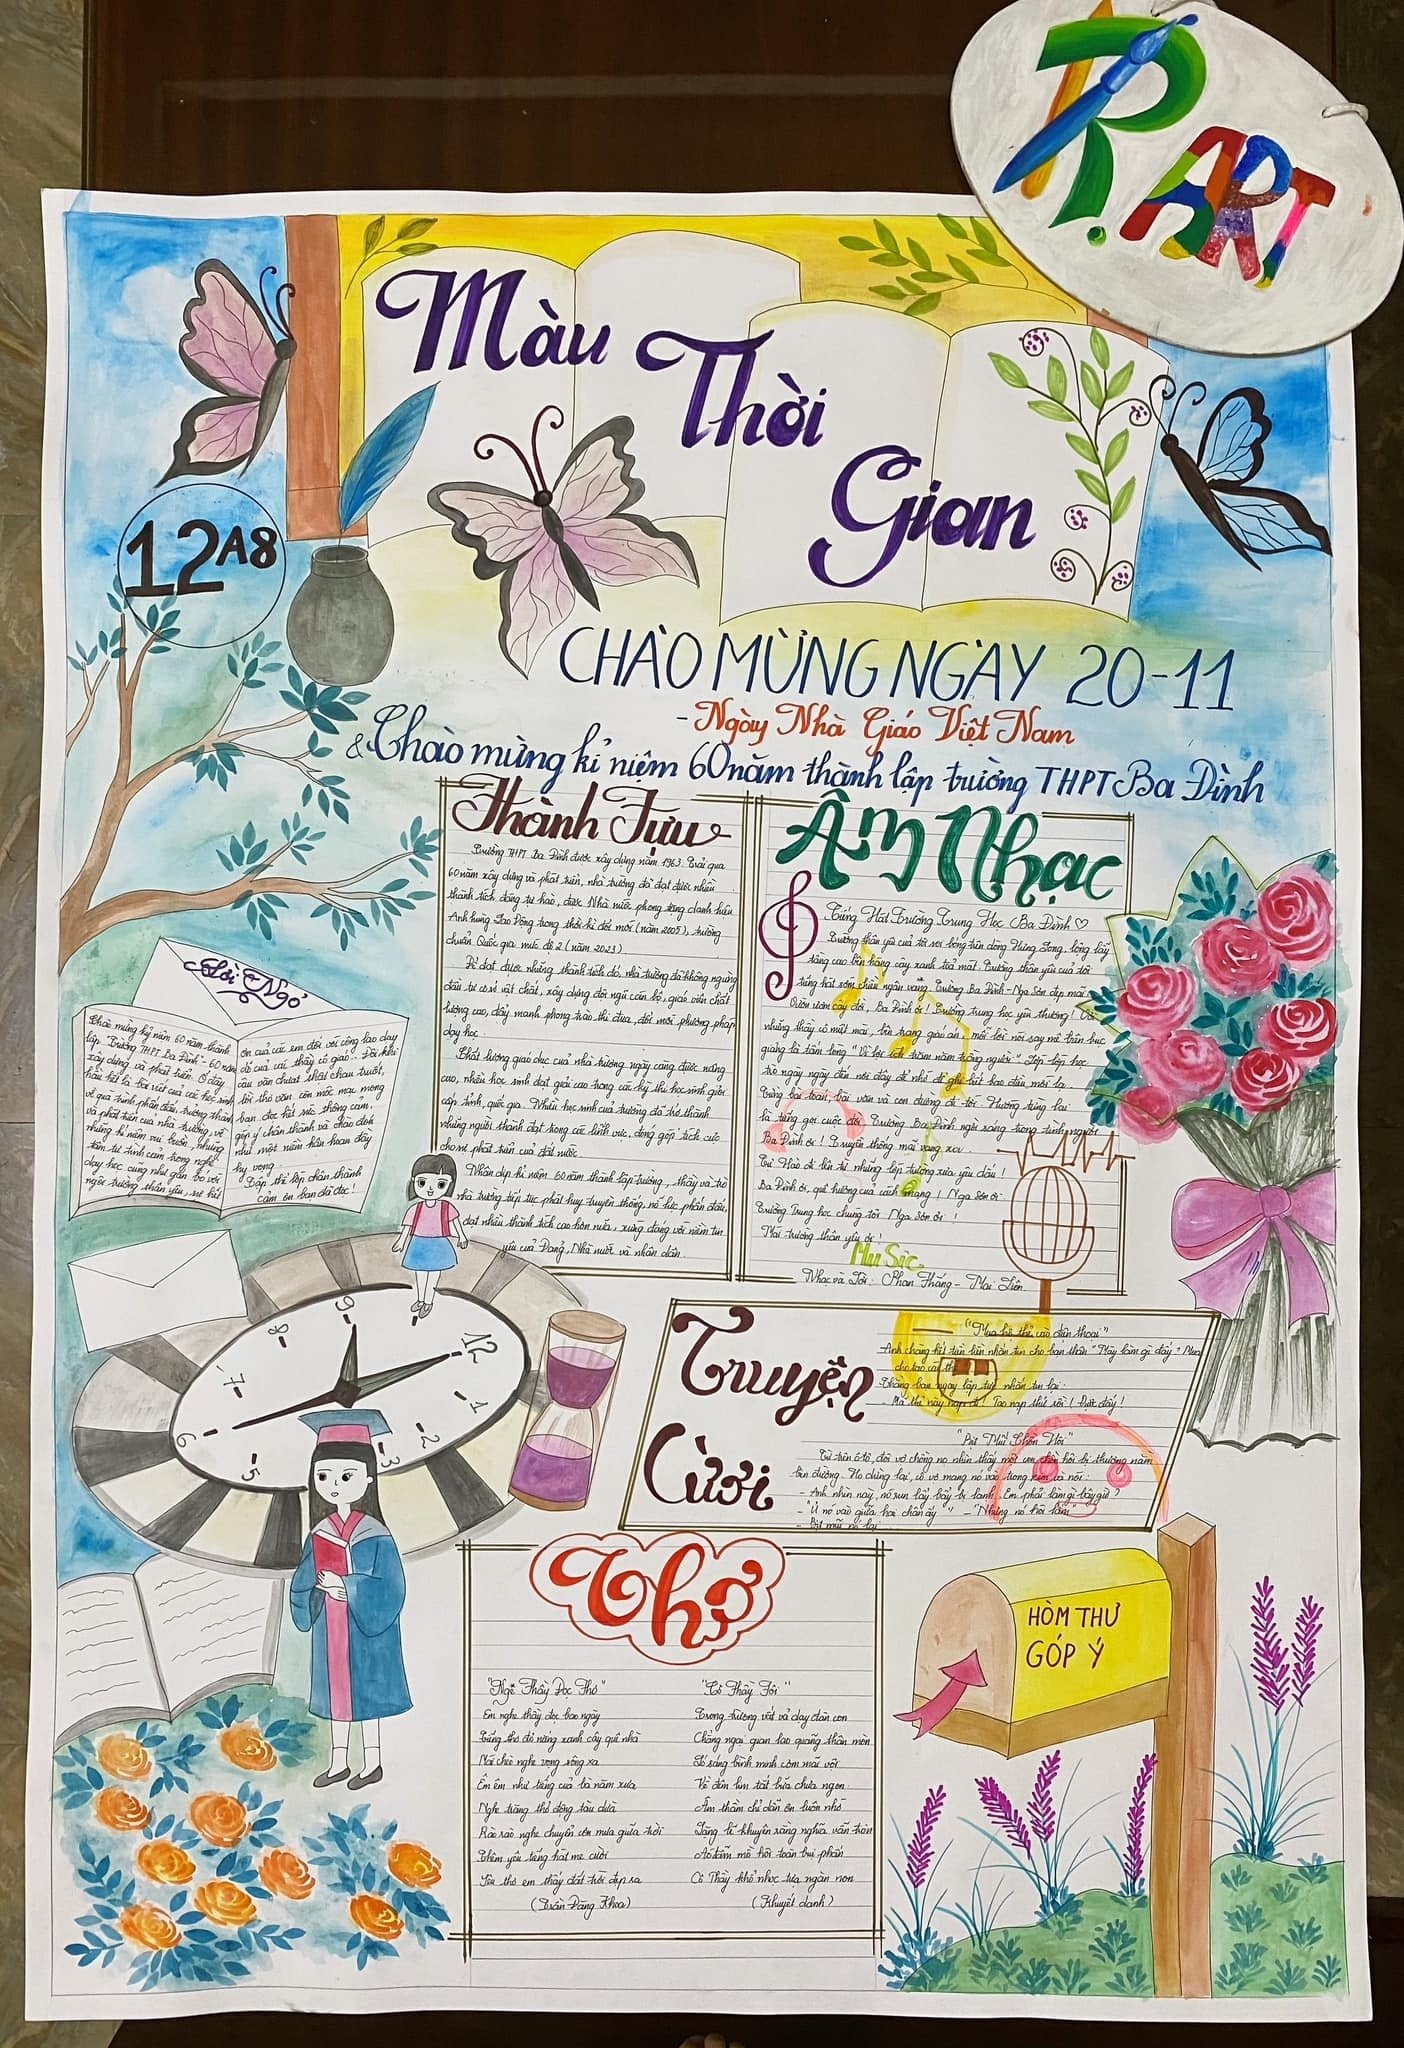 R.ART
Màu
Thời
Gian
12A8
CHÀO MỪNG NGÀY 20-11
- Ngày Nhà Giáo Việt Nam
& Chào mừng kỉ niệm 60 năm thành lập trường THPT Ba Đình
Lời Ngỏ
Chào mừng kỷ niệm 60 năm thành
lập Trường THPT Ba Đình - 60 năm
xây dựng và phát triển. Ở đây
hầu hết là bài viết của các học sinh
về quá trình phấn đấu, trưởng thành
và phát triển của nhà trường, về
những kỉ niệm vui buồn, những
tâm tư tình cảm trong nghề
dạy học cũng như gắn bó với
ngôi trường thân yêu, sự biết
ơn của các em đối với công lao dạy
dỗ của các thầy cô giáo. Đôi khi
câu văn chưa thật chau chuốt,
lời thơ văn còn mộc mạc mong
bạn đọc hết sức thông cảm,
góp ý chân thành và chào đón
như một niềm hân hoan đầy
hy vọng.
Tập thể lớp chân thành
cảm ơn bạn đã đọc!
Thành Tựu
Trường THPT Ba Đình được xây dựng năm 1963. Trải qua
60 năm xây dựng và phát triển, nhà trường đã đạt được nhiều
thành tích đáng tự hào, được Nhà nước phong tặng danh hiệu
Anh hùng Lao Động trong thời kì đổi mới (năm 2005), trường
chuẩn Quốc gia mức độ 2 (năm 2023)
Để đạt được những thành tích đó, nhà trường đã không ngừng
đầu tư cơ sở vật chất, xây dựng đội ngũ cán bộ, giáo viên chất
lượng cao, đẩy mạnh phong trào thi đua, đổi mới phương pháp
dạy học.
Chất lượng giáo dục của nhà trường ngày càng được nâng
cao, nhiều học sinh đạt giải cao trong các kỳ thi học sinh giỏi
cấp tỉnh, quốc gia. Nhiều học sinh của trường đã trở thành
những người thành đạt trong các lĩnh vực, đóng góp tích cực
cho sự phát triển của đất nước
Nhân dịp kỉ niệm 60 năm thành lập trường, thầy và trò
nhà trường tiếp tục phát huy truyền thống, nỗ lực phấn đấu,
đạt nhiều thành tích cao hơn nữa, xứng đáng với niềm tin
yêu của Đảng, Nhà nước và nhân dân.
Âm Nhạc
Tiếng Hát Trường Trung Học Ba Đình ♡
Trường thân yêu của tôi soi bóng trên dòng Hưng Long, lồng lấy
tầng cao bên hàng cây xanh tỏa mát. Trường thân yêu của tôi
tiếng hát sớm chiều ngân vang. Trường Ba Đình - Nga Sơn đẹp mãi
Vườn ươm cây đời, Ba Đình ơi! Trường trung học yêu thương!
những thầy cô miệt mài, bên trang giáo án, mỗi lời nói say mê trên bục
giảng là tấm lòng "Vì lợi ích trăm năm trồng người". Lớp lớp học
trò ngày ngày đến nơi đây để nhớ để ghi biết bao điều mới lạ
Từng bài toán, bài văn và con đường đi tới. Hướng tương lai
là tiếng gọi cuộc đời. Trường Ba Đình ngời sáng trong tình người
Ba Đình ơi! Truyền thống mãi vang xa.
Tự Hào đi lên từ những lớp trường xưa yêu dấu!
Ba Đình ơi, quê hương của cách mạng! Nga Sơn ơi
Trường Trung học chúng tôi Nga Sơn ơi!
Mái trường thân yêu ơi!
MuSic
Nhạc và Lời: Phan Thắng - Mai Liên
12
1
2
3
5
6
7
8
9
Truyện
Cười
"Mua hộ thẻ cào điện thoại"
Anh chàng hết tiền liền nhắn tin cho bạn thân "Mày làm gì đấy? Mua
cho tao cái thẻ
Thằng bạn ngay lập tức nhắn tin lại:
- Mã thẻ này nạp đi! Tao nạp thử rồi! Được đấy!
"Bịt Mũi Chồn Hôi"
Từ trên ô tô, đôi vợ chồng nọ nhìn thấy một con chồn hôi bị thương nằm
bên đường. Họ dừng lại, cô vợ mang nó vào trong xe và nói:
- Anh nhìn này, nó run lẩy bẩy bị lạnh. Em phải làm gì bây giờ?
- "Ủ nó vào giữa hai chân ấy" - "Nhưng nó hôi lắm"
- Bịt mũi nó lại
Thơ
"Nghe Thầy Đọc Thơ"
Em nghe thầy đọc bao ngày
Tiếng thơ đỏ nắng xanh cây quê nhà
Mái chèo nghe vọng sông xa
Êm êm như tiếng của bà năm xưa
Nghe trăng thở động tàu dừa
Rào rào nghe chuyển cơn mưa giữa trời
Thêm yêu tiếng hát mẹ cười
Yêu thơ em thấy đất trời đẹp ra
(Trần Đăng Khoa)
"Cô Thầy Tôi"
Trong trường vất vả dạy đàn con
Chẳng ngại gian lao quãng thân mòn
Tờ sáng bình minh còn mải vội
Về đêm lim tắt bữa chưa ngon
Âm thầm chỉ dẫn ơn luôn nhớ
Lặng lẽ khuyên răng nghĩa vẫn tròn
Áo đẫm mồ hôi toàn bụi phấn
Cô Thầy khổ nhọc tựa ngàn non
(Khuyết danh)
HÒM THƯ
GÓP Ý